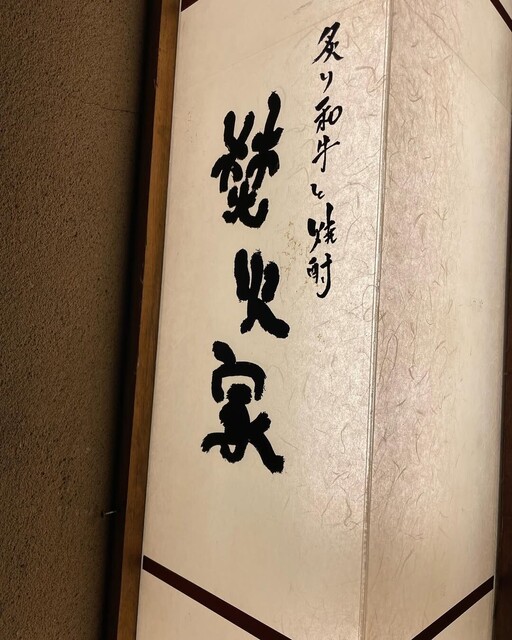 炙り和牛と焼酎
焚火家